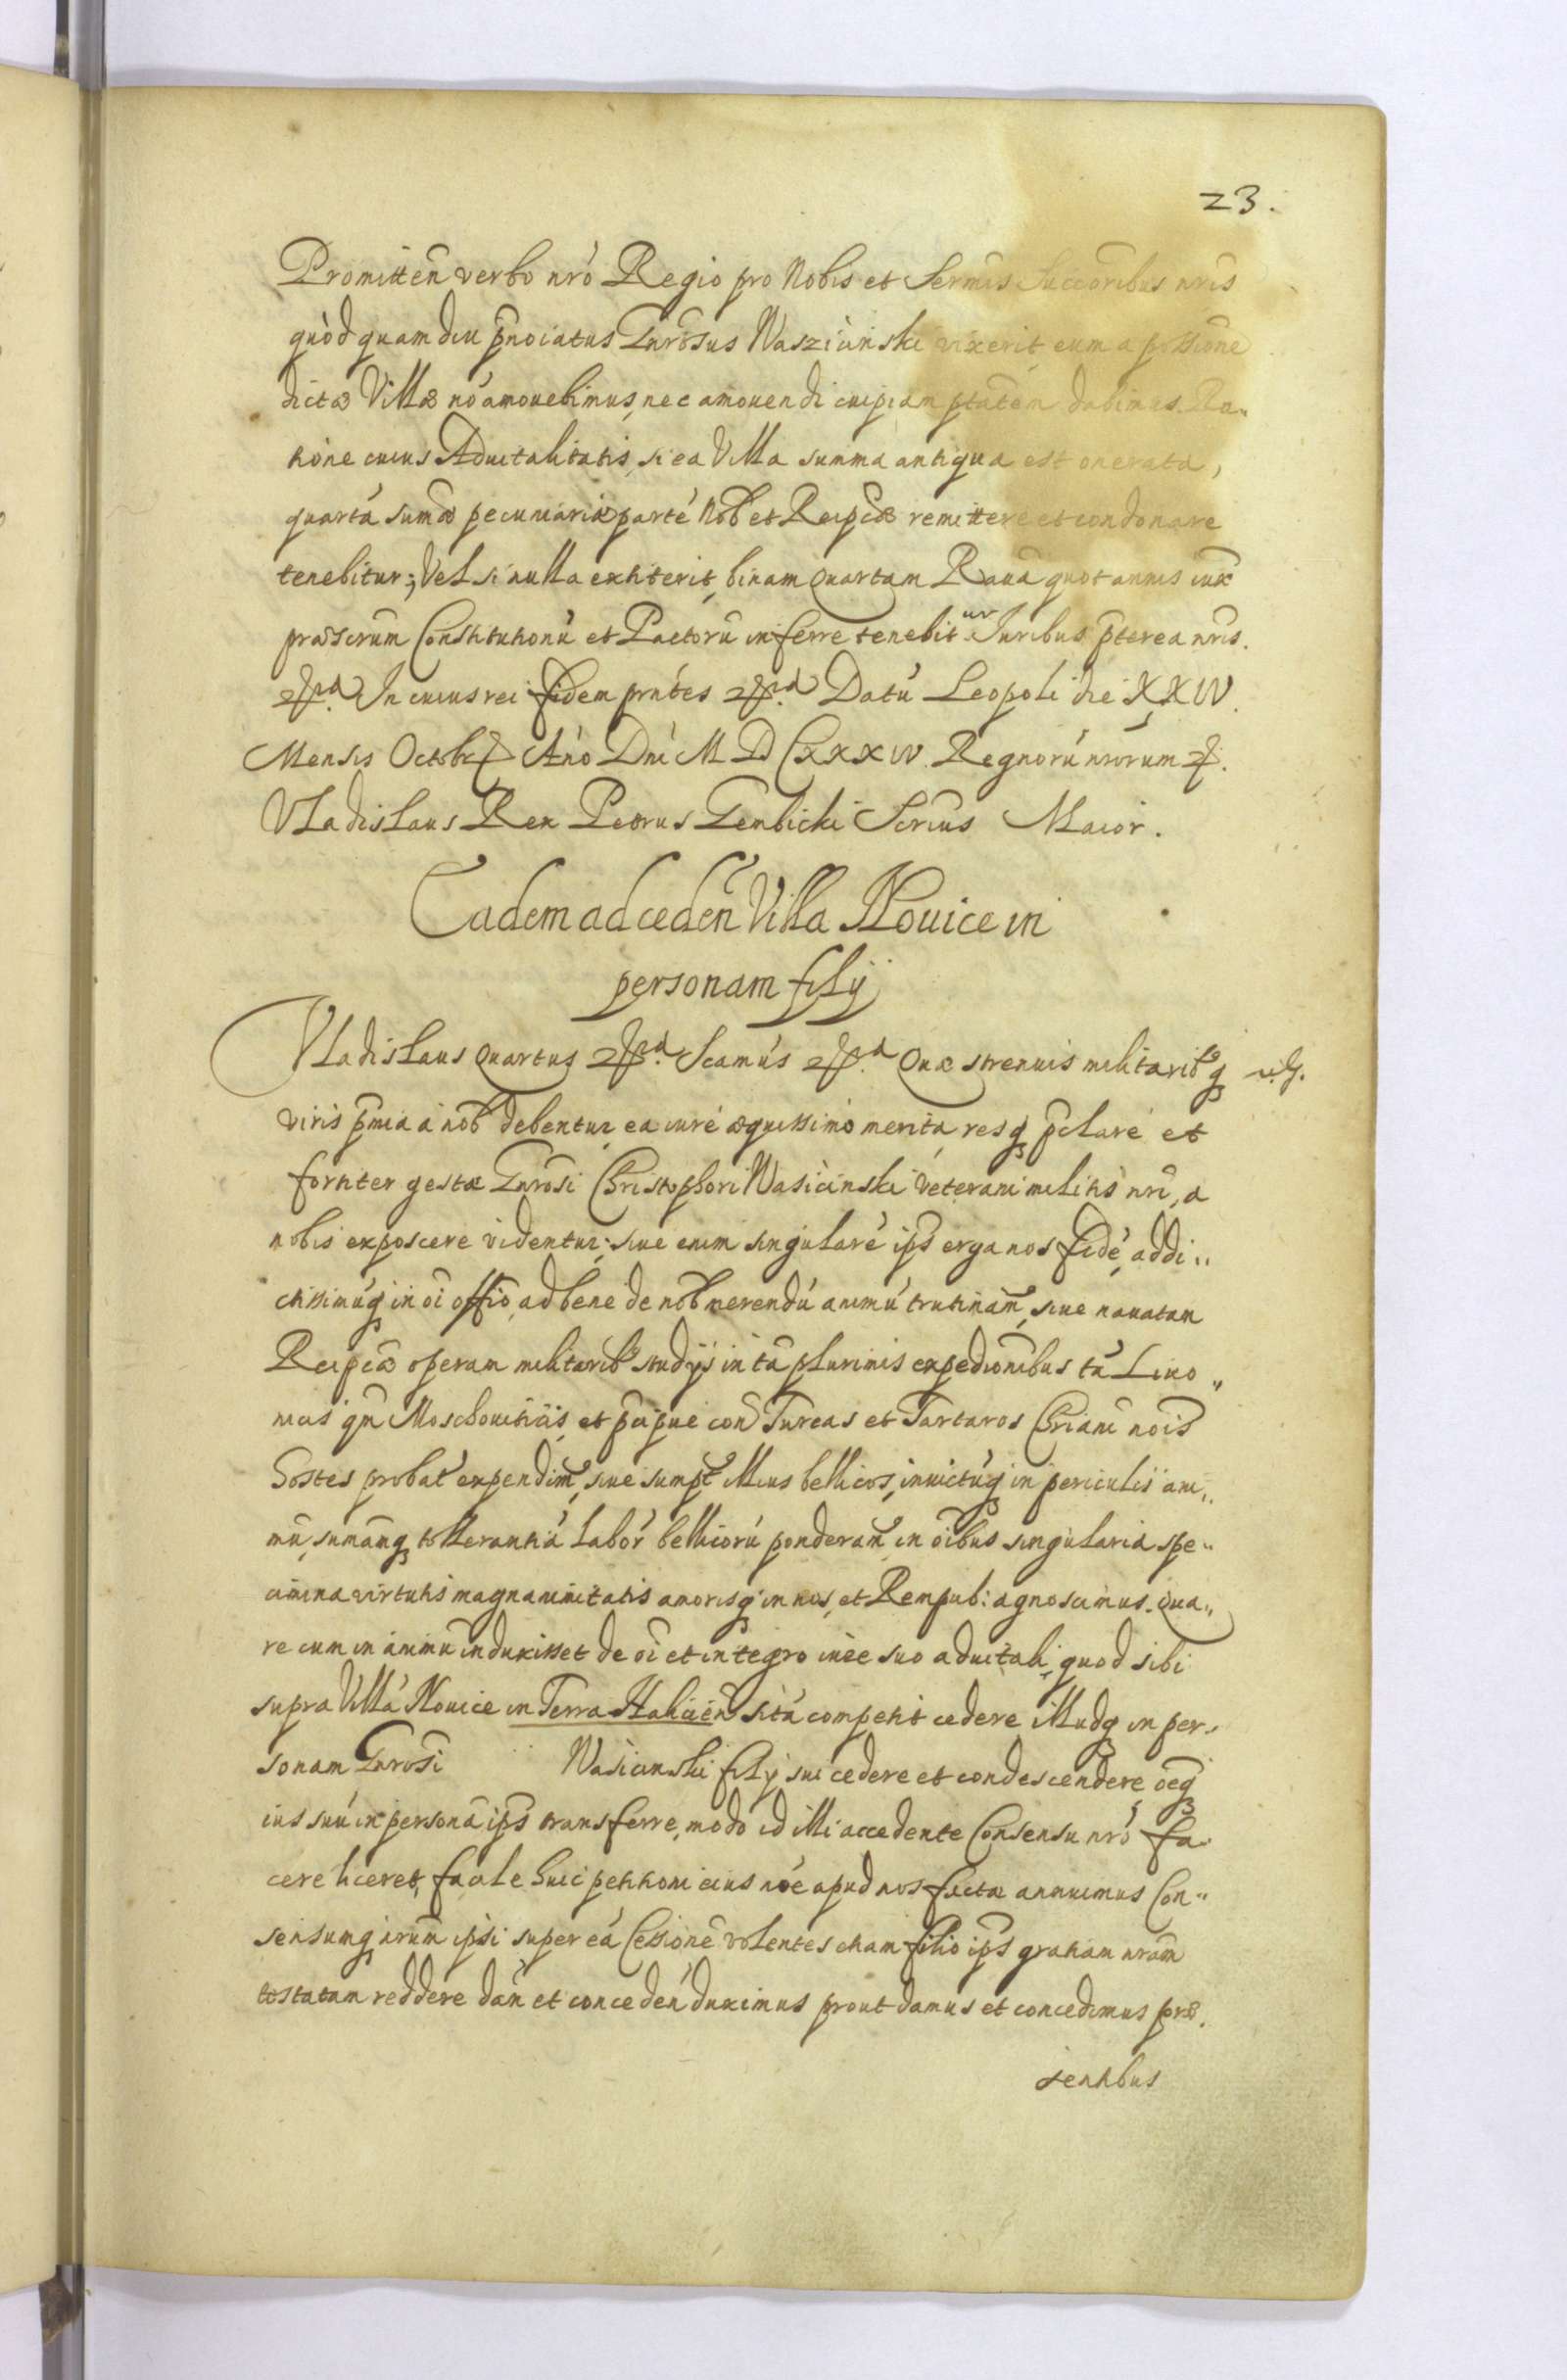 23.
Promitteñ verbo nrõ Regio pro Nobis et Sermis Succoribus nris
quòd quamdiu pnoiatus Gnrosus Waszicinski vixerit eum a possione
dictæ Villæ nõ amouebimus, nec amouendi cuipiam ptatem dabimus. Ra„
tione cuius Aduitalitatis, si ea Villa summa antiqua est onerata,
quartã sumæ pecuniariæ partẽ Nob et Reipcæ remittere et condonare
tenebitur; Vel si nulla extiterit, binam Quartam Rauã quotannis iux
præscrum Constitutionũ et Pactorũ inferre tenebitur Juribus pterea nris.
etc. In cuius rei fidem pntes etc. Datũ Leopoli die XXIV.
Mensis Octobr Año Dni MDCXXXIV. Regnorũ nrorum etc.
Vladislaus Rex Petrus Gembicki Scrius Maior.
Eadem ad cedeñ Villa Nouice in
personam filij
Vladislaus Quartus etc. Scamus etc. Quæ strenuis militaribq
viris pmia à nob debentur, ea iure æquissimo merita, resq pclare et
fortiter gestæ Gnrosi Christophori Wasicinski veterani militis nri, a
nobis exposcere videntur; siue enim singularẽ ips erga nos fidẽ, addi„
ctissimũq in oi offio, ad bene de nob merendũ animũ trutinam, siue nauatam
Reipcæ operam militarib studijs in tã plurimis expedionibus tã Liuo„
nicis qm Moschouiticis, et pcipue con Turcas et Tartaros Chriani nois
hostes probat expendim, siue sumpt illius bellicos, inuictũq in periculis ani„
mũ, sumamq tollerantiã labor bellicorũ ponderam, in oibus singularia spe„
cimina virtutis magnanimitatis amorisq in nos, et Rempub: agnoscimus. Qua„
re cum in animũ induxisset de oi et integro iure suo aduitali, quod sibi
supra Villã Nouice in Terra Halicieñ sitã competit cedere illudq in per„
sonam Gnrosi Wasicinski filij sui cedere et condescendere, oeq
ius suũ in personã ips transferre, modo id illi accedente Consensu nrõ fa„
cere liceret, facile huic petitioni eius noe apud nos factæ annuimus Con„
sensumq nrum ipsi super eã Cessionẽ volentes etiam filio ips gratiam nram
testatam reddere dañ et concedeñ duximus prout damus et concedimus præ„
sentibus